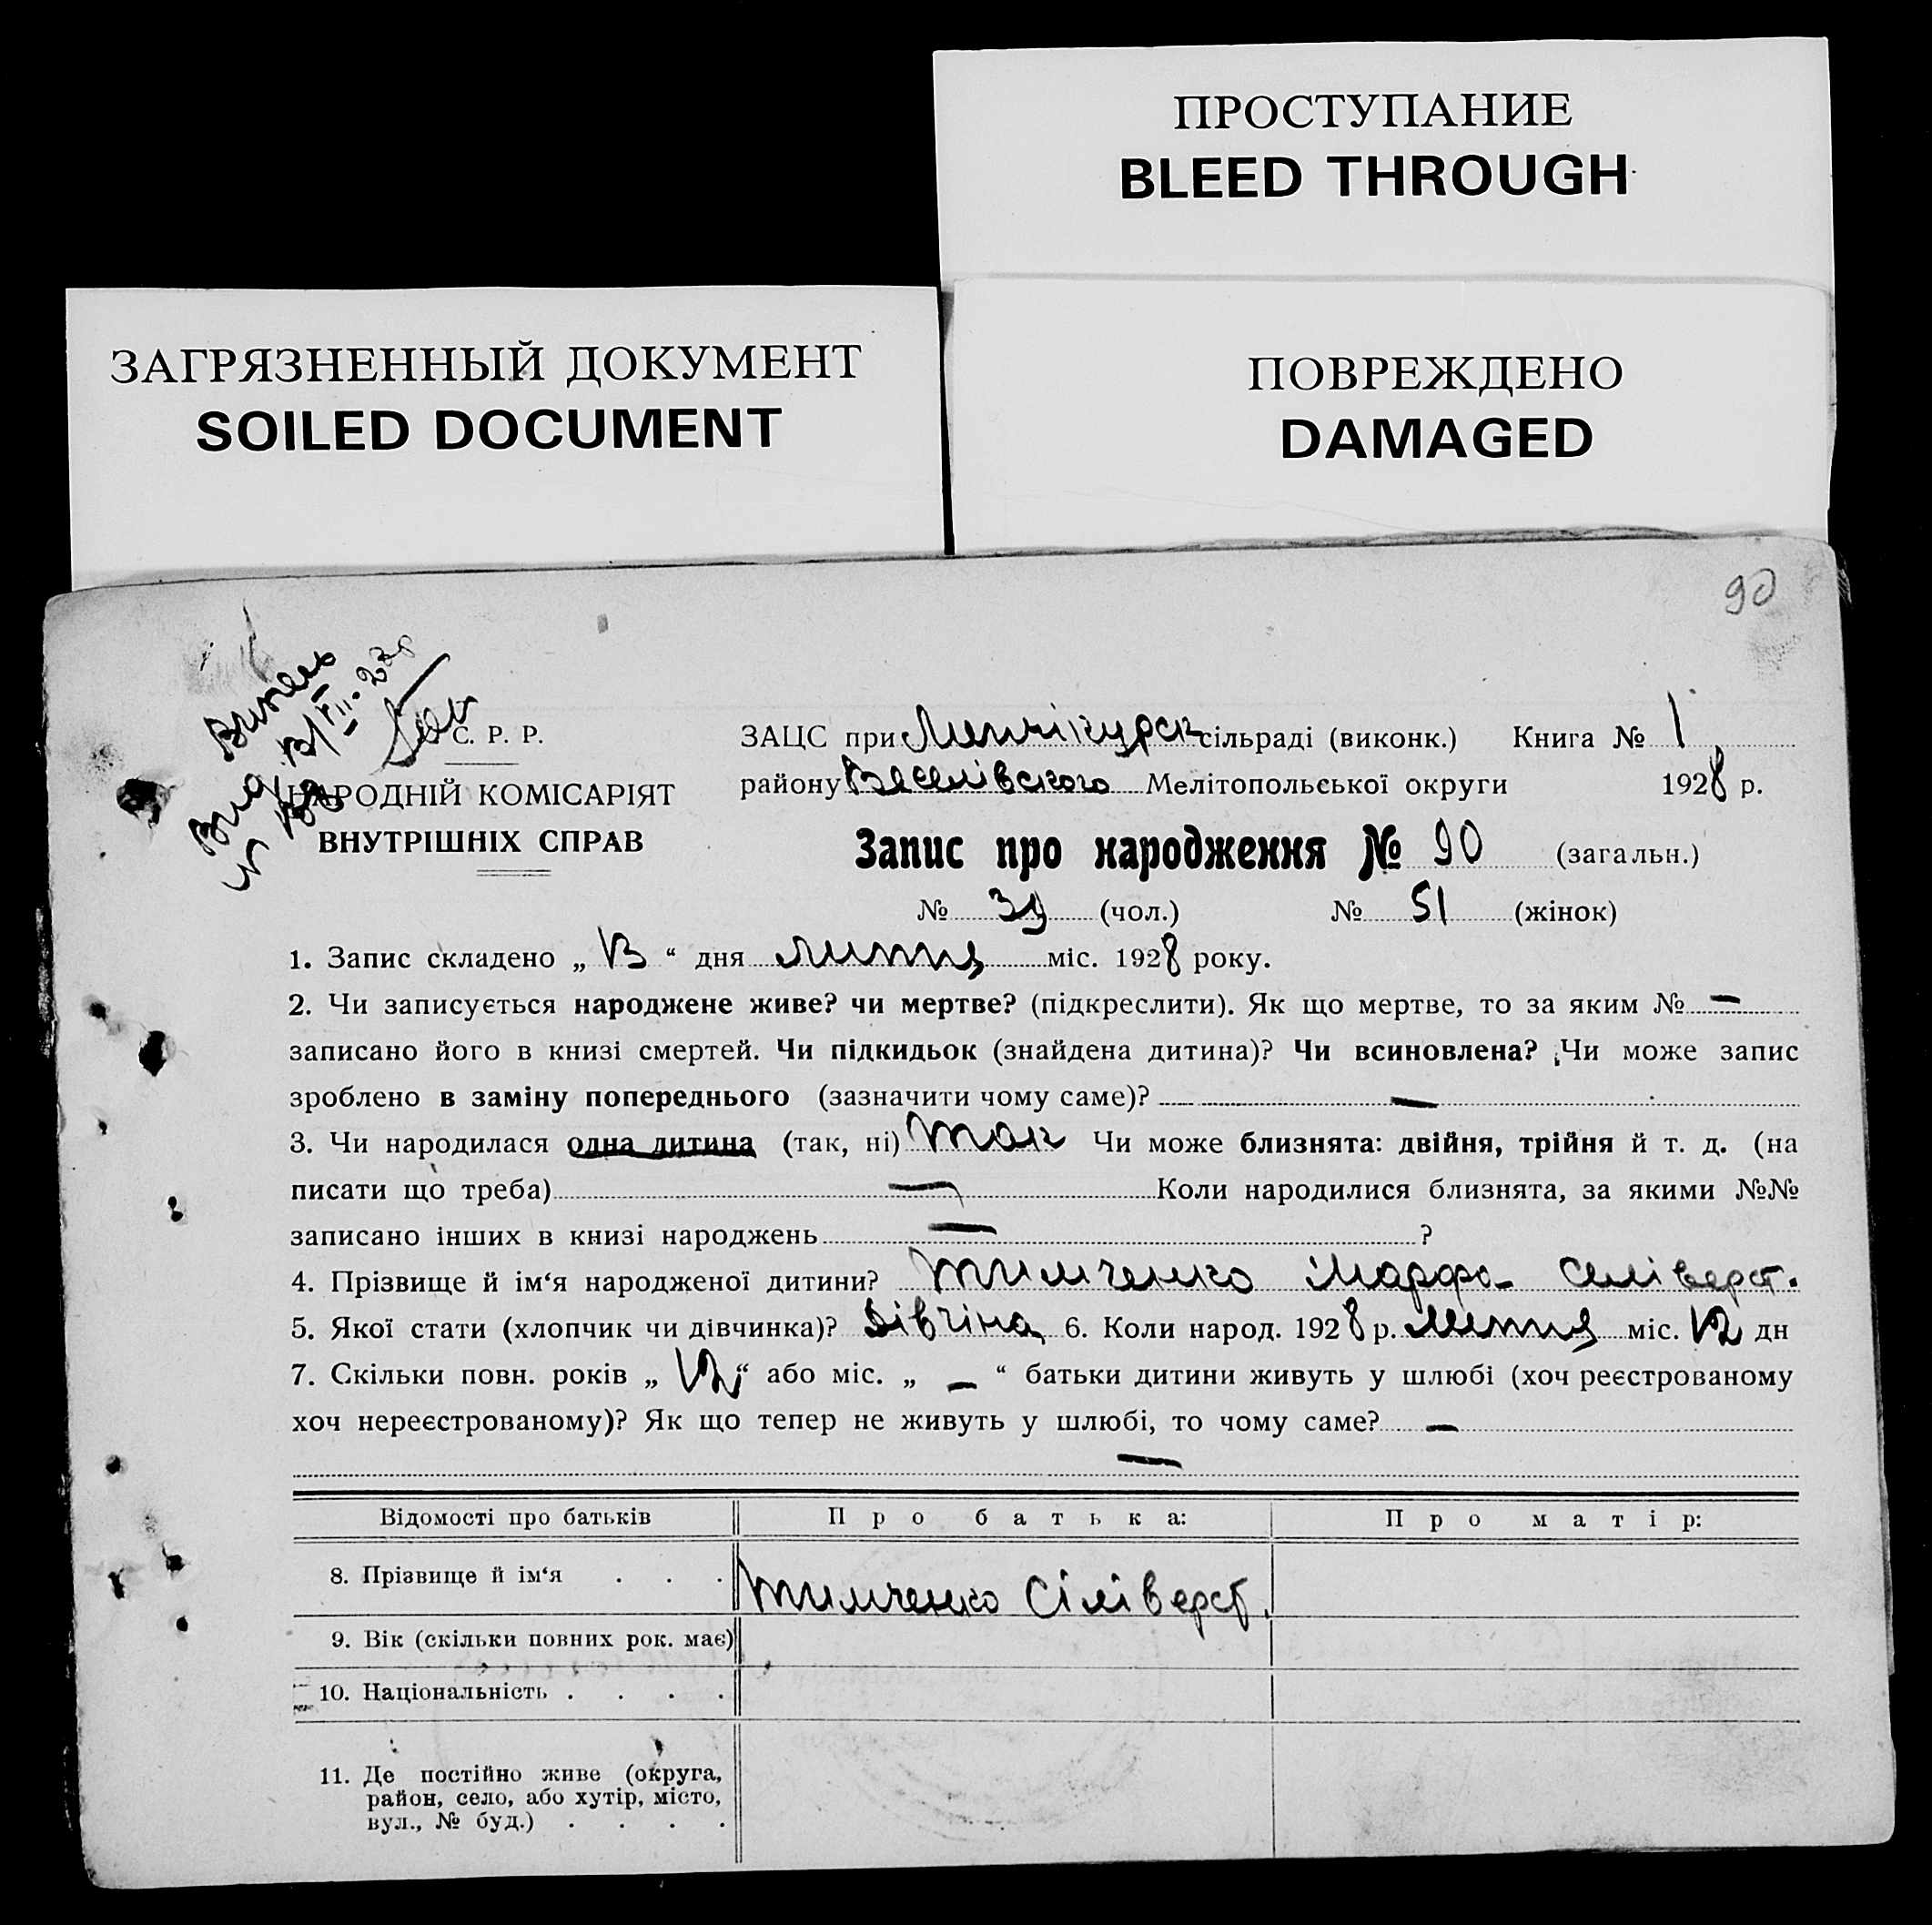 ПРОСТУПАНИЕ
BLEED THROUGH
ЗАГРЯЗНЕННЫЙ ДОКУМЕНТ
SOILED DOCUMENT
ПОВРЕЖДЕНО
DAMAGED
90
С. Р. Р.
НАРОДНІЙ КОМІСАРІЯТ
ВНУТРІШНІХ СПРАВ
ЗАЦС при сільраді (виконк.) Книга № 1
району Веселівского Мелітопольської округи 1928 р.
Запис про народження № 90 (загальн.)
№ 39 (чол.) № 51 (жінок)
1. Запис складено „ 13 “ дня липня міс. 1928 року.
2. Чи записується народжене живе? чи мертве? (підкреслити). Як що мертве, то за яким № —
записано його в книзі смертей. Чи підкидьок (знайдена дитина)? Чи всиновлена? Чи може запис
зроблено в заміну попереднього (зазначити чому саме)? —
3. Чи народилася одна дитина (так, ні) так Чи може близнята: двійня, трійня й т. д. (на
писати що треба) — Коли народилися близнята, за якими №№
записано інших в книзі народжень — ?
4. Прізвище й ім‘я народженої дитини? Тимченко Марфа Селіверст.
5. Якої стати (хлопчик чи дівчинка)? Дівчіна 6. Коли народ. 1928 р. липня міс. 12 дн
7. Скільки повн. років „ 12 “ або міс. „ — “ батьки дитини живуть у шлюбі (хоч реєстрованому
хоч нереєстрованому)? Як що тепер не живуть у шлюбі, то чому саме? —
—
Відомості про батьків Про батька: Про матір:
8. Прізвище й ім‘я . . . Тимченко Сіліверст.
9. Вік (скільки повних рок. має)
10. Національність . . . .
11. Де постійно живе (округа,
район, село, або хутір, місто,
вул., № буд.) . . . .